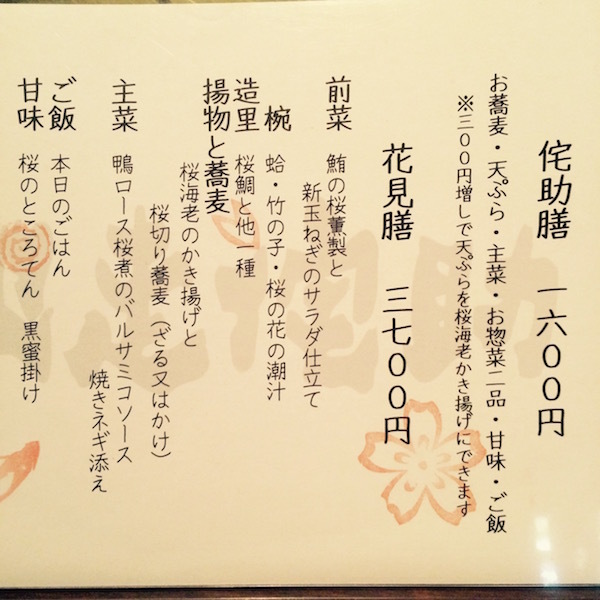 侘助膳 一六００円
お蕎麦・天ぷら・主菜・お惣菜二品・甘味・ご飯
※三００円増しで天ぷらを桜海老かき揚げにできます
花見膳 三七００円
前菜 鮪の桜薫製と
新玉ねぎのサラダ仕立て
椀 蛤・竹の子・桜の花の潮汁
造里 桜鯛と他一種
揚物と蕎麦
桜海老のかき揚げと
桜切り蕎麦（ざる又はかけ）
主菜 鴨ロース桜煮のバルサミコソース
焼きネギ添え
ご飯 本日のごはん
甘味 桜のところてん 黒蜜掛け